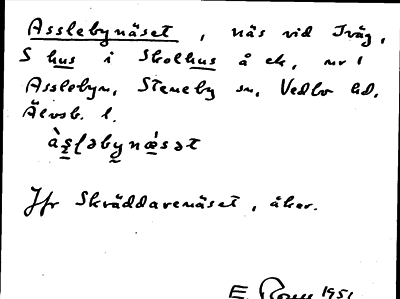 Asslebynäset, näs vid Iväg,
S hus i Skolhus å ek, nr 1
Asslebyn, Steneby sn, Vedbo hd,
Älvsb. l.
às̬ʃəby̬næ̀sət
Jfr Skräddarenäset, åker.
E. 1951